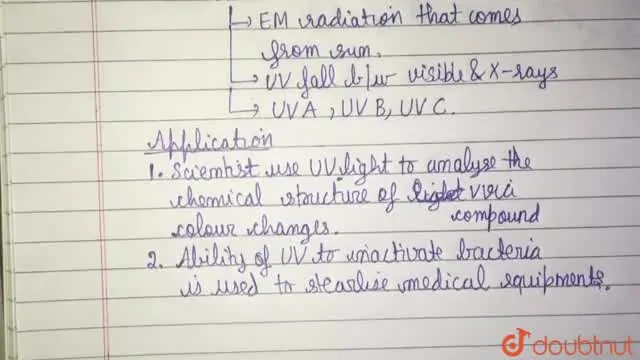 → EM radiation that comes
from sun.
→ UV fall b/w visible & X-rays
→ UVA, UV B, UV C.
Application
1. Scientist use UV light to analyse the
chemical structure of light via
compound
colour changes.
2. Ability of UV to inactivate bacteria
is used to stearlise medical equipments.
doubtnut